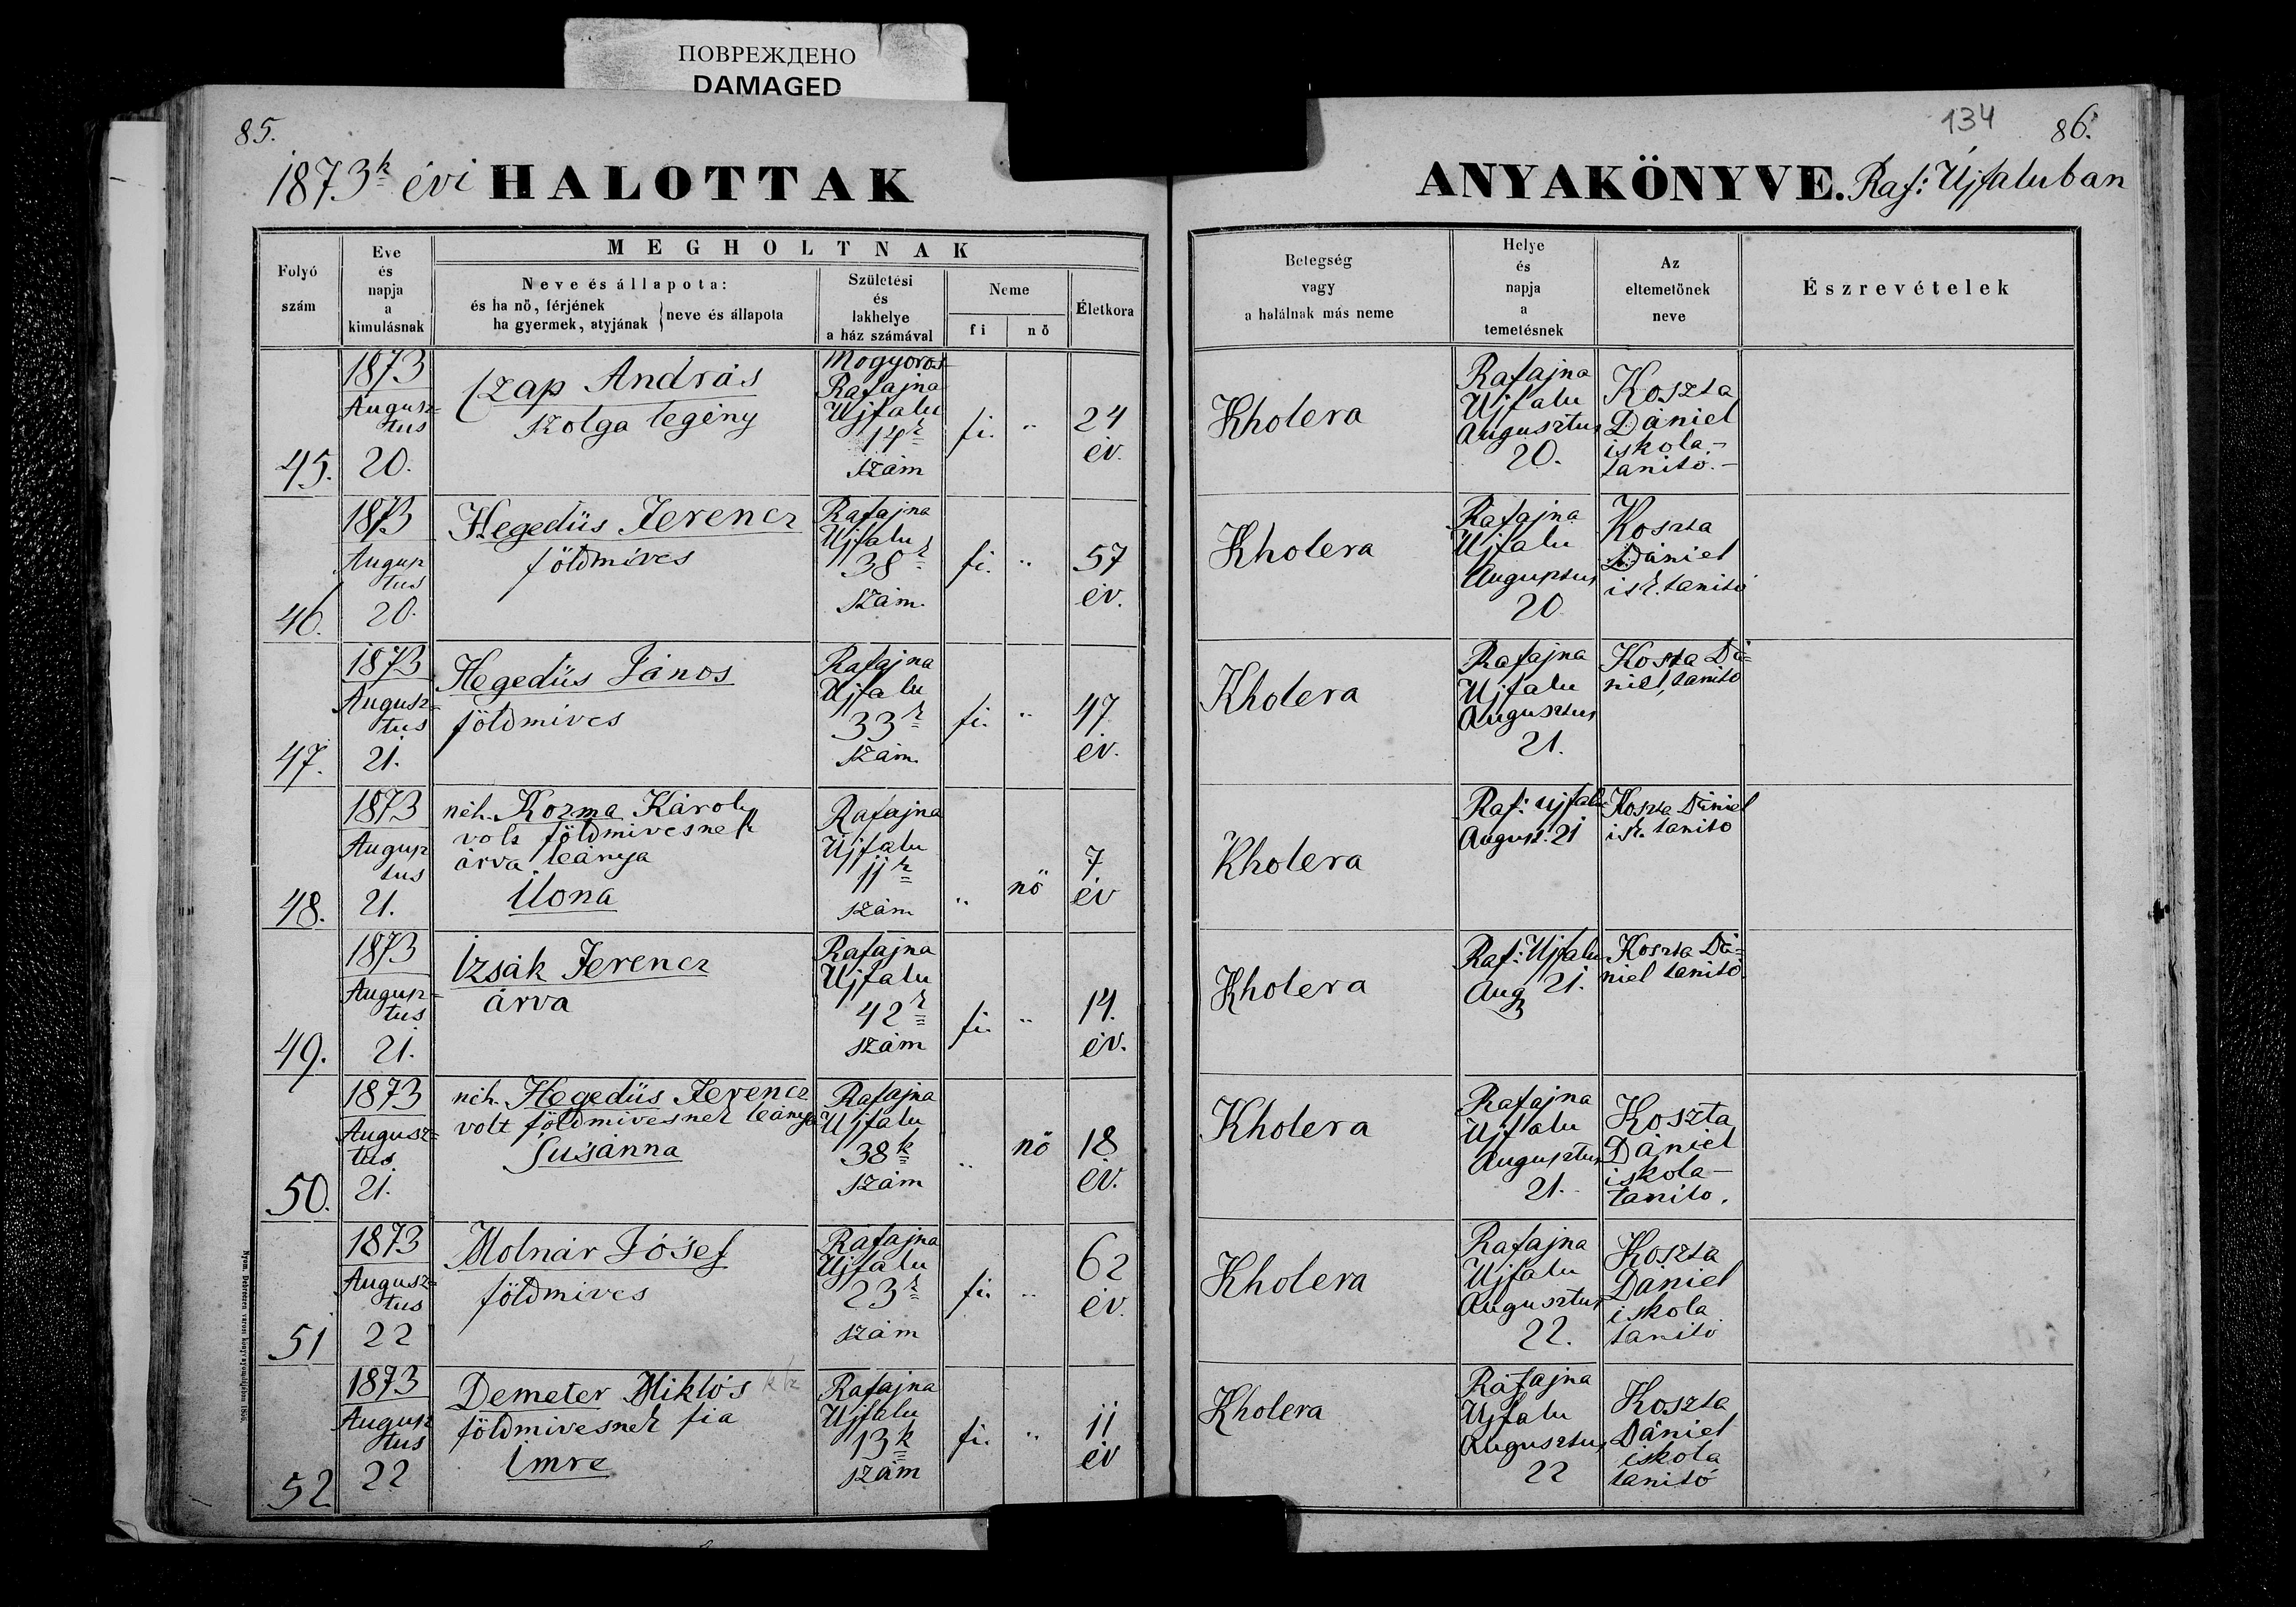 ПОВРЕЖДЕНО
DAMAGED
85.
1873k évi HALOTTAK
Folyó szám
Eve és napja a kimulásnak
MEGHOLTNAK
Neve és állapota:
és ha nő, férjének
ha gyermek, atyjának } neve és állapota
Születési és lakhelye a ház számával
Neme
fi
nő
Életkora
45.
1873 Augusz= tus 20.
Czap András
szolga legény
Mogyoros Rafajna Ujfalu 14k szám
fi.
"
24 év.
46.
1873 Augusz tus 20.
Hegedüs Ferencz
földmíves
Rafajna Ujfalu 38k szám.
fi.
"
57 év.
47.
1873 Augusz= tus 21.
Hegedüs János
földmíves
Rafajna Ujfalu 33k szám
fi.
"
47 év.
48.
1873 Augusz tus 21.
néh. Kozma Károly
volt földmivesnek
árva leánya
Ilona
Rafajna Ujfalu 11k szám
"
nő
7. év
49.
1873 Augusz= tus 21.
Izsák Ferencz
árva
Rafajna Ujfalu 42k szám
fi.
"
14. év.
50.
1873 Augusz= tus 21.
néh. Hegedüs Ferencz
volt földmivesnek leánya
Susánna
Rafajna Ujfalu 38k szám
"
nő
18 év.
51
1873 Augusz= tus 22
Molnár Jósef
földmives
Rafajna Ujfalu 23k szám
fi.
"
62 év.
52
1873 Augusz tus 22
Demeter Miklós
földmivesnek fia
Imre
Rafajna Ujfalu 13k szám
fi.
"
11 év
Nyom. Debreczen város könyvnyomdájában 1856.
134
86.
ANYAKÖNYVE. Raf: Újfaluban
Betegség vagy a halálnak más neme
Helye és napja a temetésnek
Az eltemetőnek neve
Észrevételek
Kholera
Rafajna Ujfalu Augusztus 20.
Koszta Dániel iskola- tanitó.-
Kholera
Rafajna Ujfalu Augusztus 20
Koszta Dániel isk. tanitó
Kholera
Rafajna Ujfalu Augusztus 21.
Koszta Dá= niel, tanitó
Kholera
Raf: Ujfalu August. 21
Koszta Dániel isk. tanitó
Kholera
Raf: Ujfalu Aug 21.
Koszta Dá= niel tanitó
Kholera
Rafajna Ujfalu Augusztus 21.
Koszta Dániel iskola- tanito.
Kholera
Rafajna Ujfalu Augusztus 22.
Koszta Dániel iskola tanitó
Kholera
Rafajna Ujfalu Augusztus 22
Koszta Dániel iskola tanitó